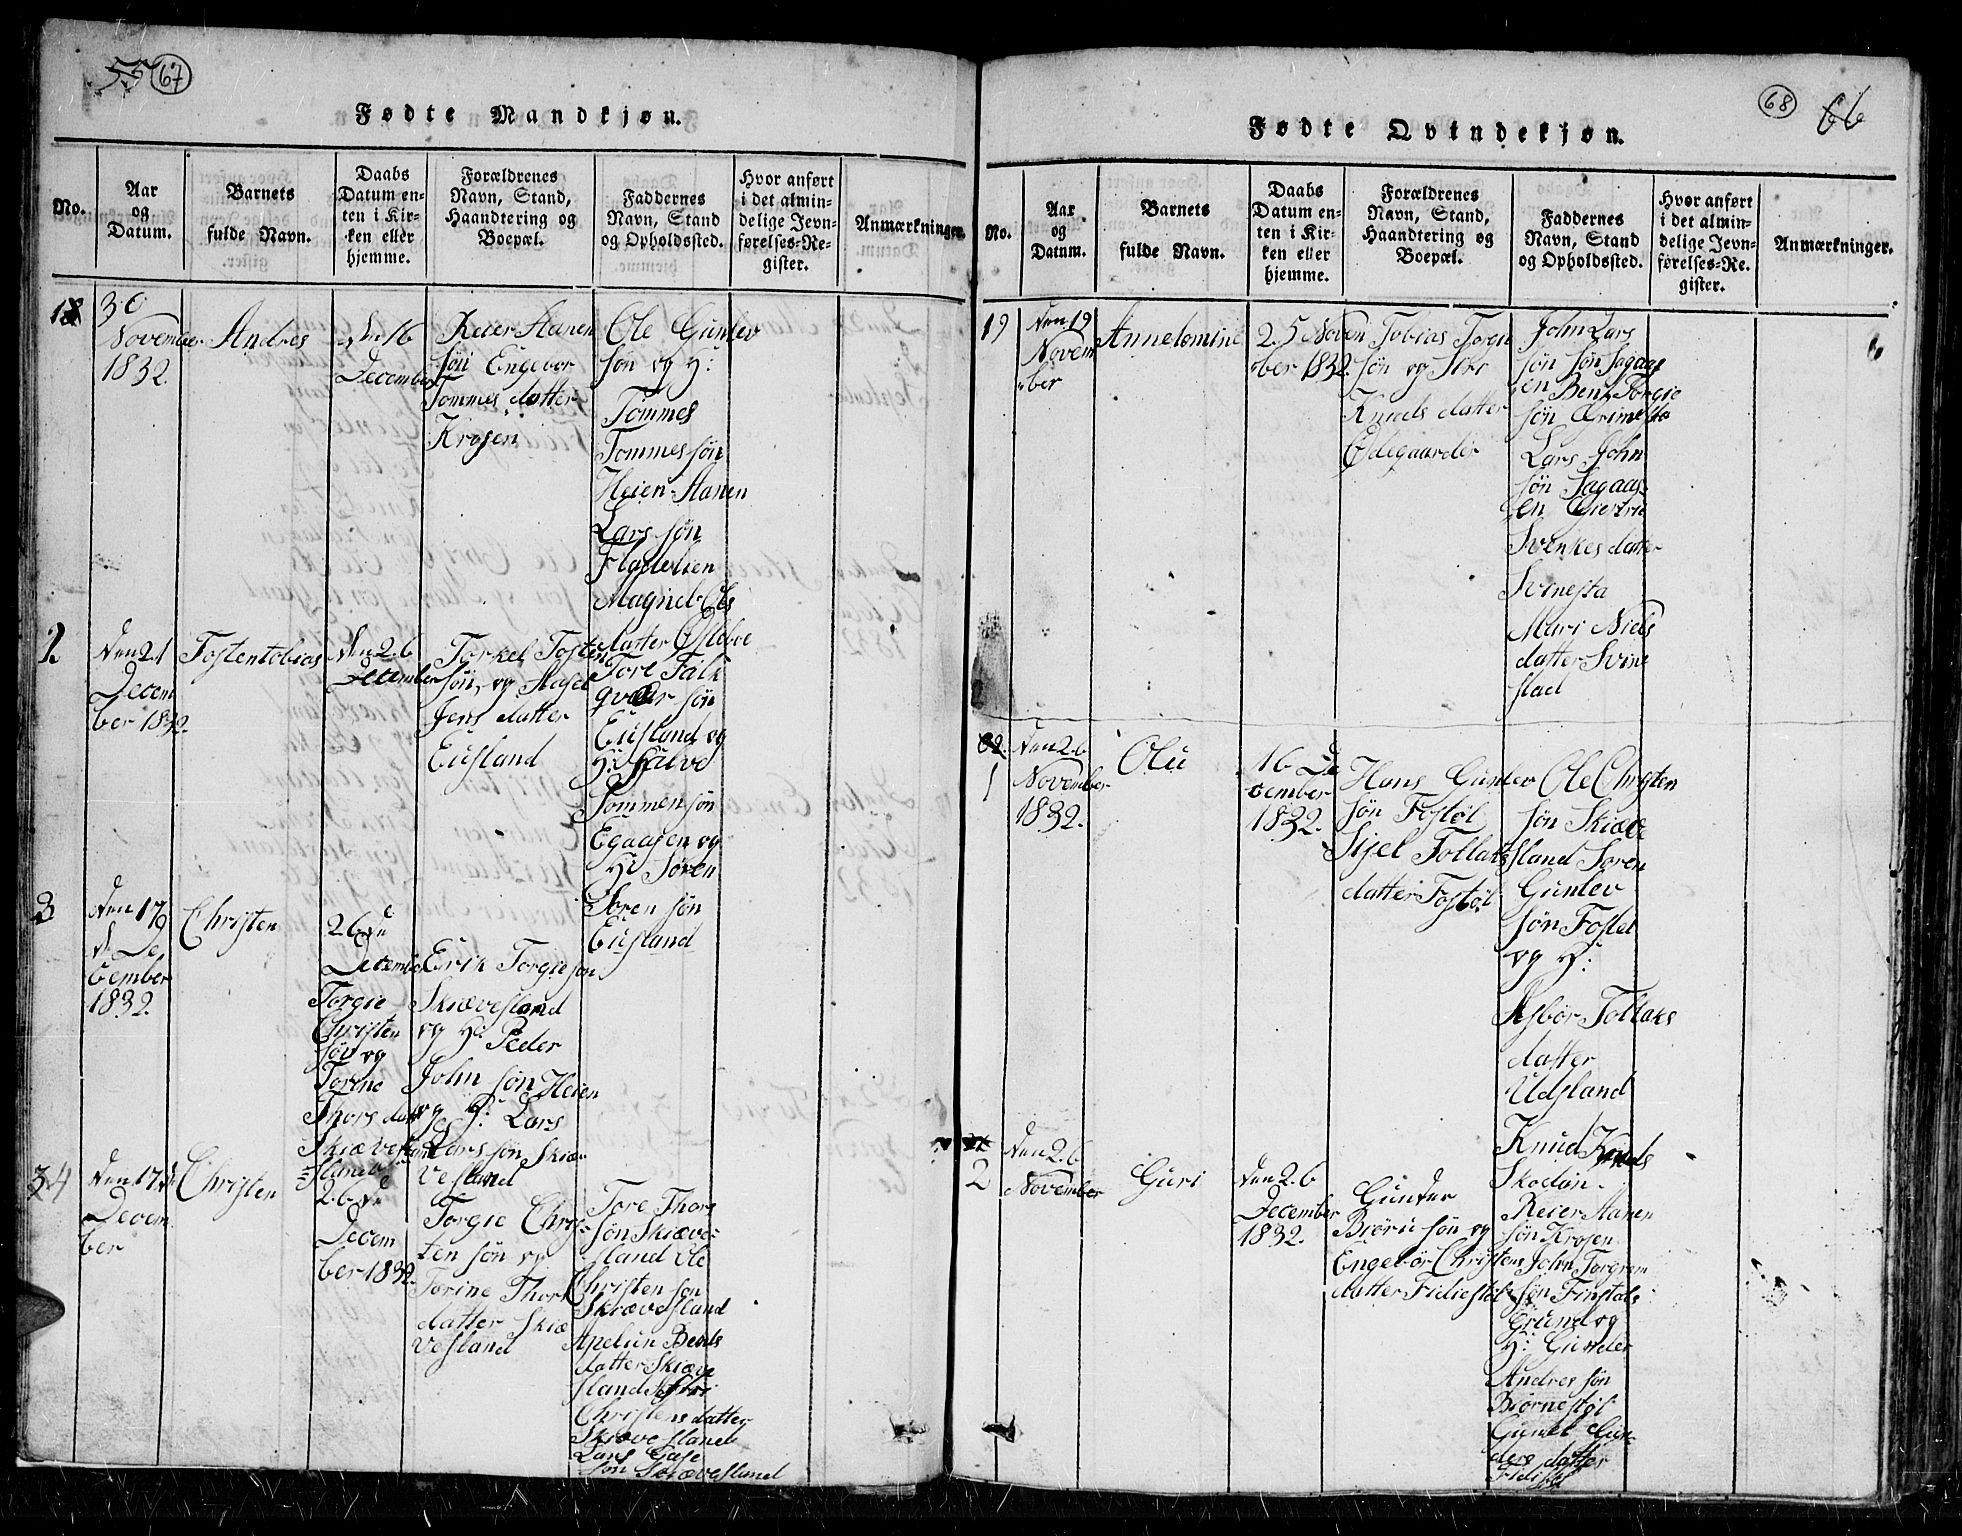 55 67
Fødte Mandkjøn.
No.
Aar
og
Datum.
Barnets
fulde Navn.
Daabs
Datum en-
ten i Kir-
ken eller
hjemme.
Forældrenes
Navn, Stand,
Haandtering og
Boepæl.
Faddernes
Navn, Stand
og Opholdssted.
Hvor anført
i det almin-
delige Jevn-
førelses-Re-
gister.
Anmærkninger.
18
30
November
1832.
Andres
den 16
December
Reier Aanen
søn Engebor
Tommes datter
Krosen
Ole Gunlev
søn og H:
Tommes
Tommes søn
Heien Aanen
Lars søn
Fladelien
Magnil Ols
datter Øsleboe
2
den 21
Decem
ber 1832.
Tostentobias
den 26
December
Torkel Tosten
søn og Aasel
Jens datter
Eusland
Tore Falk
qvær søn
Eusland og
H: Halvo
Tommen søn
Egaasen og
H: Søren
Soren søn
Eusland
3
den 17
de De
cember
1832.
Christen
26 de
December
Torgie
Christen
søn og
Torine
Thors datt
Skiævesl
=sland
Erik Torgie søn
Skiævesland
og H: Peder
John søn Heien
og H: Lars
Lars søn Skiæ
vesland
34
den 17 de
Decem
ber
Christen
26 de
Decem
ber 1832
Torgie Chris-
ten søn og
Torine Thors
datter Skiæ
vesland
Tore Thors
søn Skiæve=
sland Ole
Christen søn
Skiævesland
Apelun Bents
datter Skiæve
sland
Christens datter
Skiæve sland
Lars Gase
søn Skiævesland
68 66
Fødte Qvindekjøn.
No.
Aar
og
Datum.
Barnets
fulde Navn.
Daabs
Datum en-
ten i Kir-
ken eller
hjemme.
Forældrenes
Navn, Stand,
Haandtering og
Boepæl.
Faddernes
Navn, Stand
og Opholdssted.
Hvor anført
i det almin-
delige Jevn-
førelses-Re-
gister.
Anmærkninger.
19
den 19
Novem
ber
Annetomine
25 Novem
ber 1832.
Tobias Torgu
søn og Siri
Knuds datter
Ødegaarder
John Lars
søn søn Sagaas
en Bent Torgie
søn Grimesta
Lars John
søn Sagaas
en Giertru
Svenkes datter
Svinesta
Mari Niels
datter Svine
stad
1
den 26
November
1832.
Olu
16 De
cember
1832.
Hans Gunlev
søn Fostøl
Sijel Tollaks
datter Fostøl
Ole Christen
søn Skiæve
sland Soren
Gunlev
søn Fostel
og H:
Asbør Tollaks
datter
Udsland
2
den 26
November
Guri
den 26
December
1832.
Gunder
Biørn søn og
Engebor Christens
datter Fidiestøl
Knud Knuds
Skodøn.
Reier Aanen
søn Krosen
John Torgrem
søn Finstals
Grund og
H: Gunder
Andres søn
Biørnestøl
Gunel Gun-
ders datter